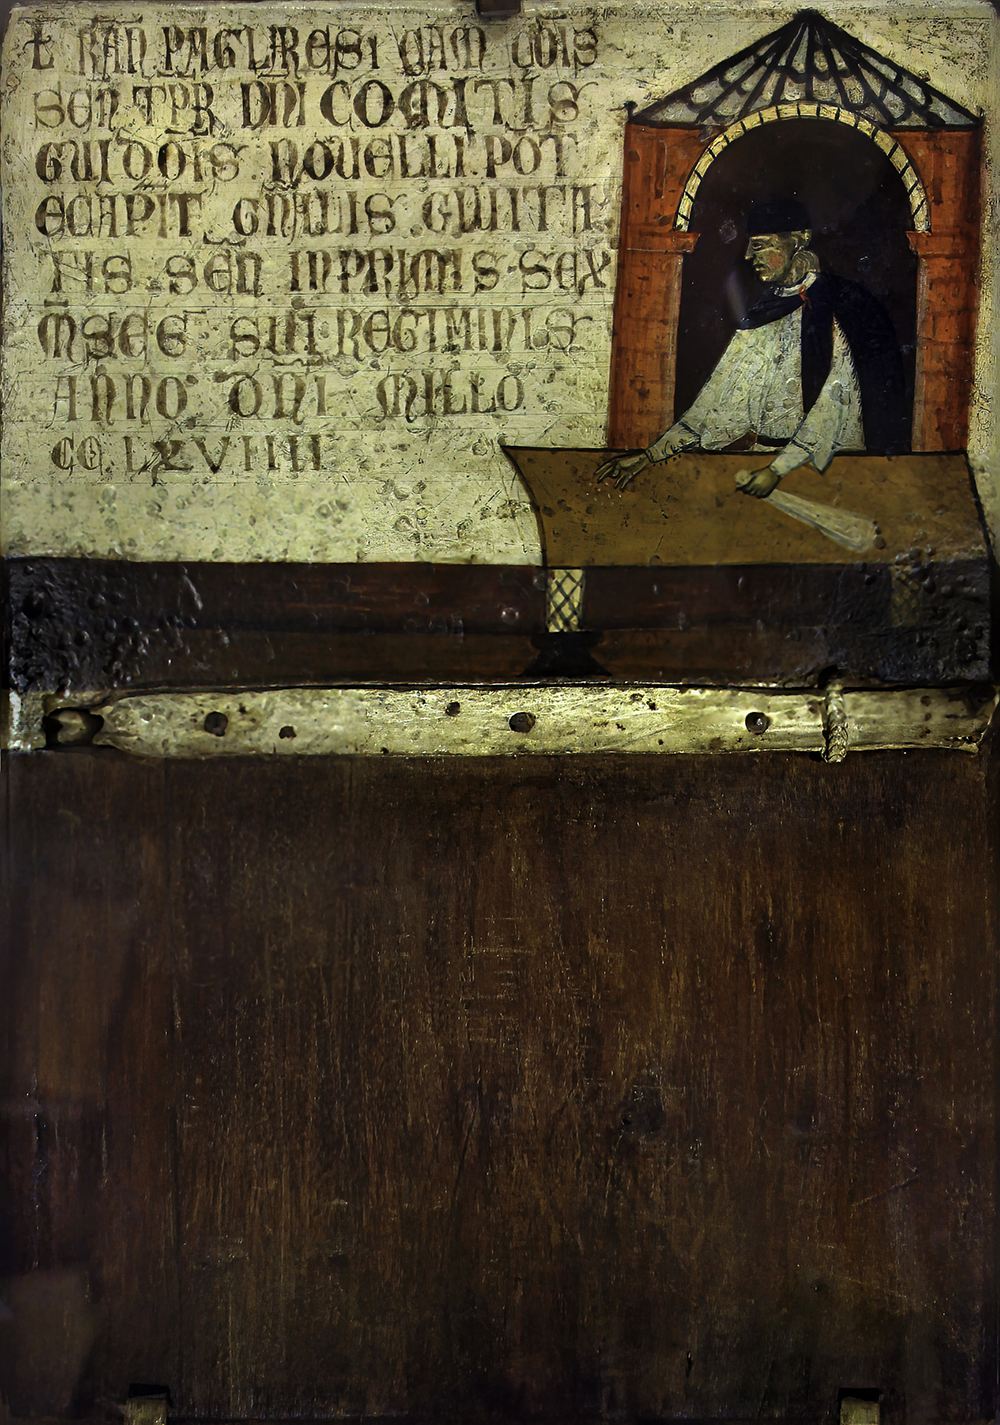 RAÑ PAGLARESI CAM COIS
SEN TPR DNI COMITIS
GUIDOIS NOUELLI POT
ECAPIT GNALIS CIUITA
TIS SEN IN PRIMIS SEX
MSEE SUI REGIMINIS
ANNO DNI MILLO
CC LXVIIII